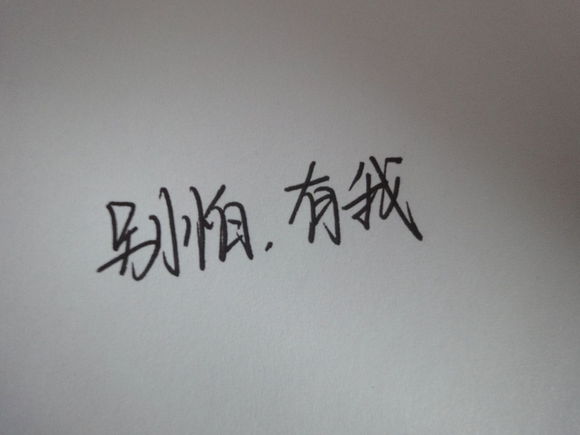 别怕.有我